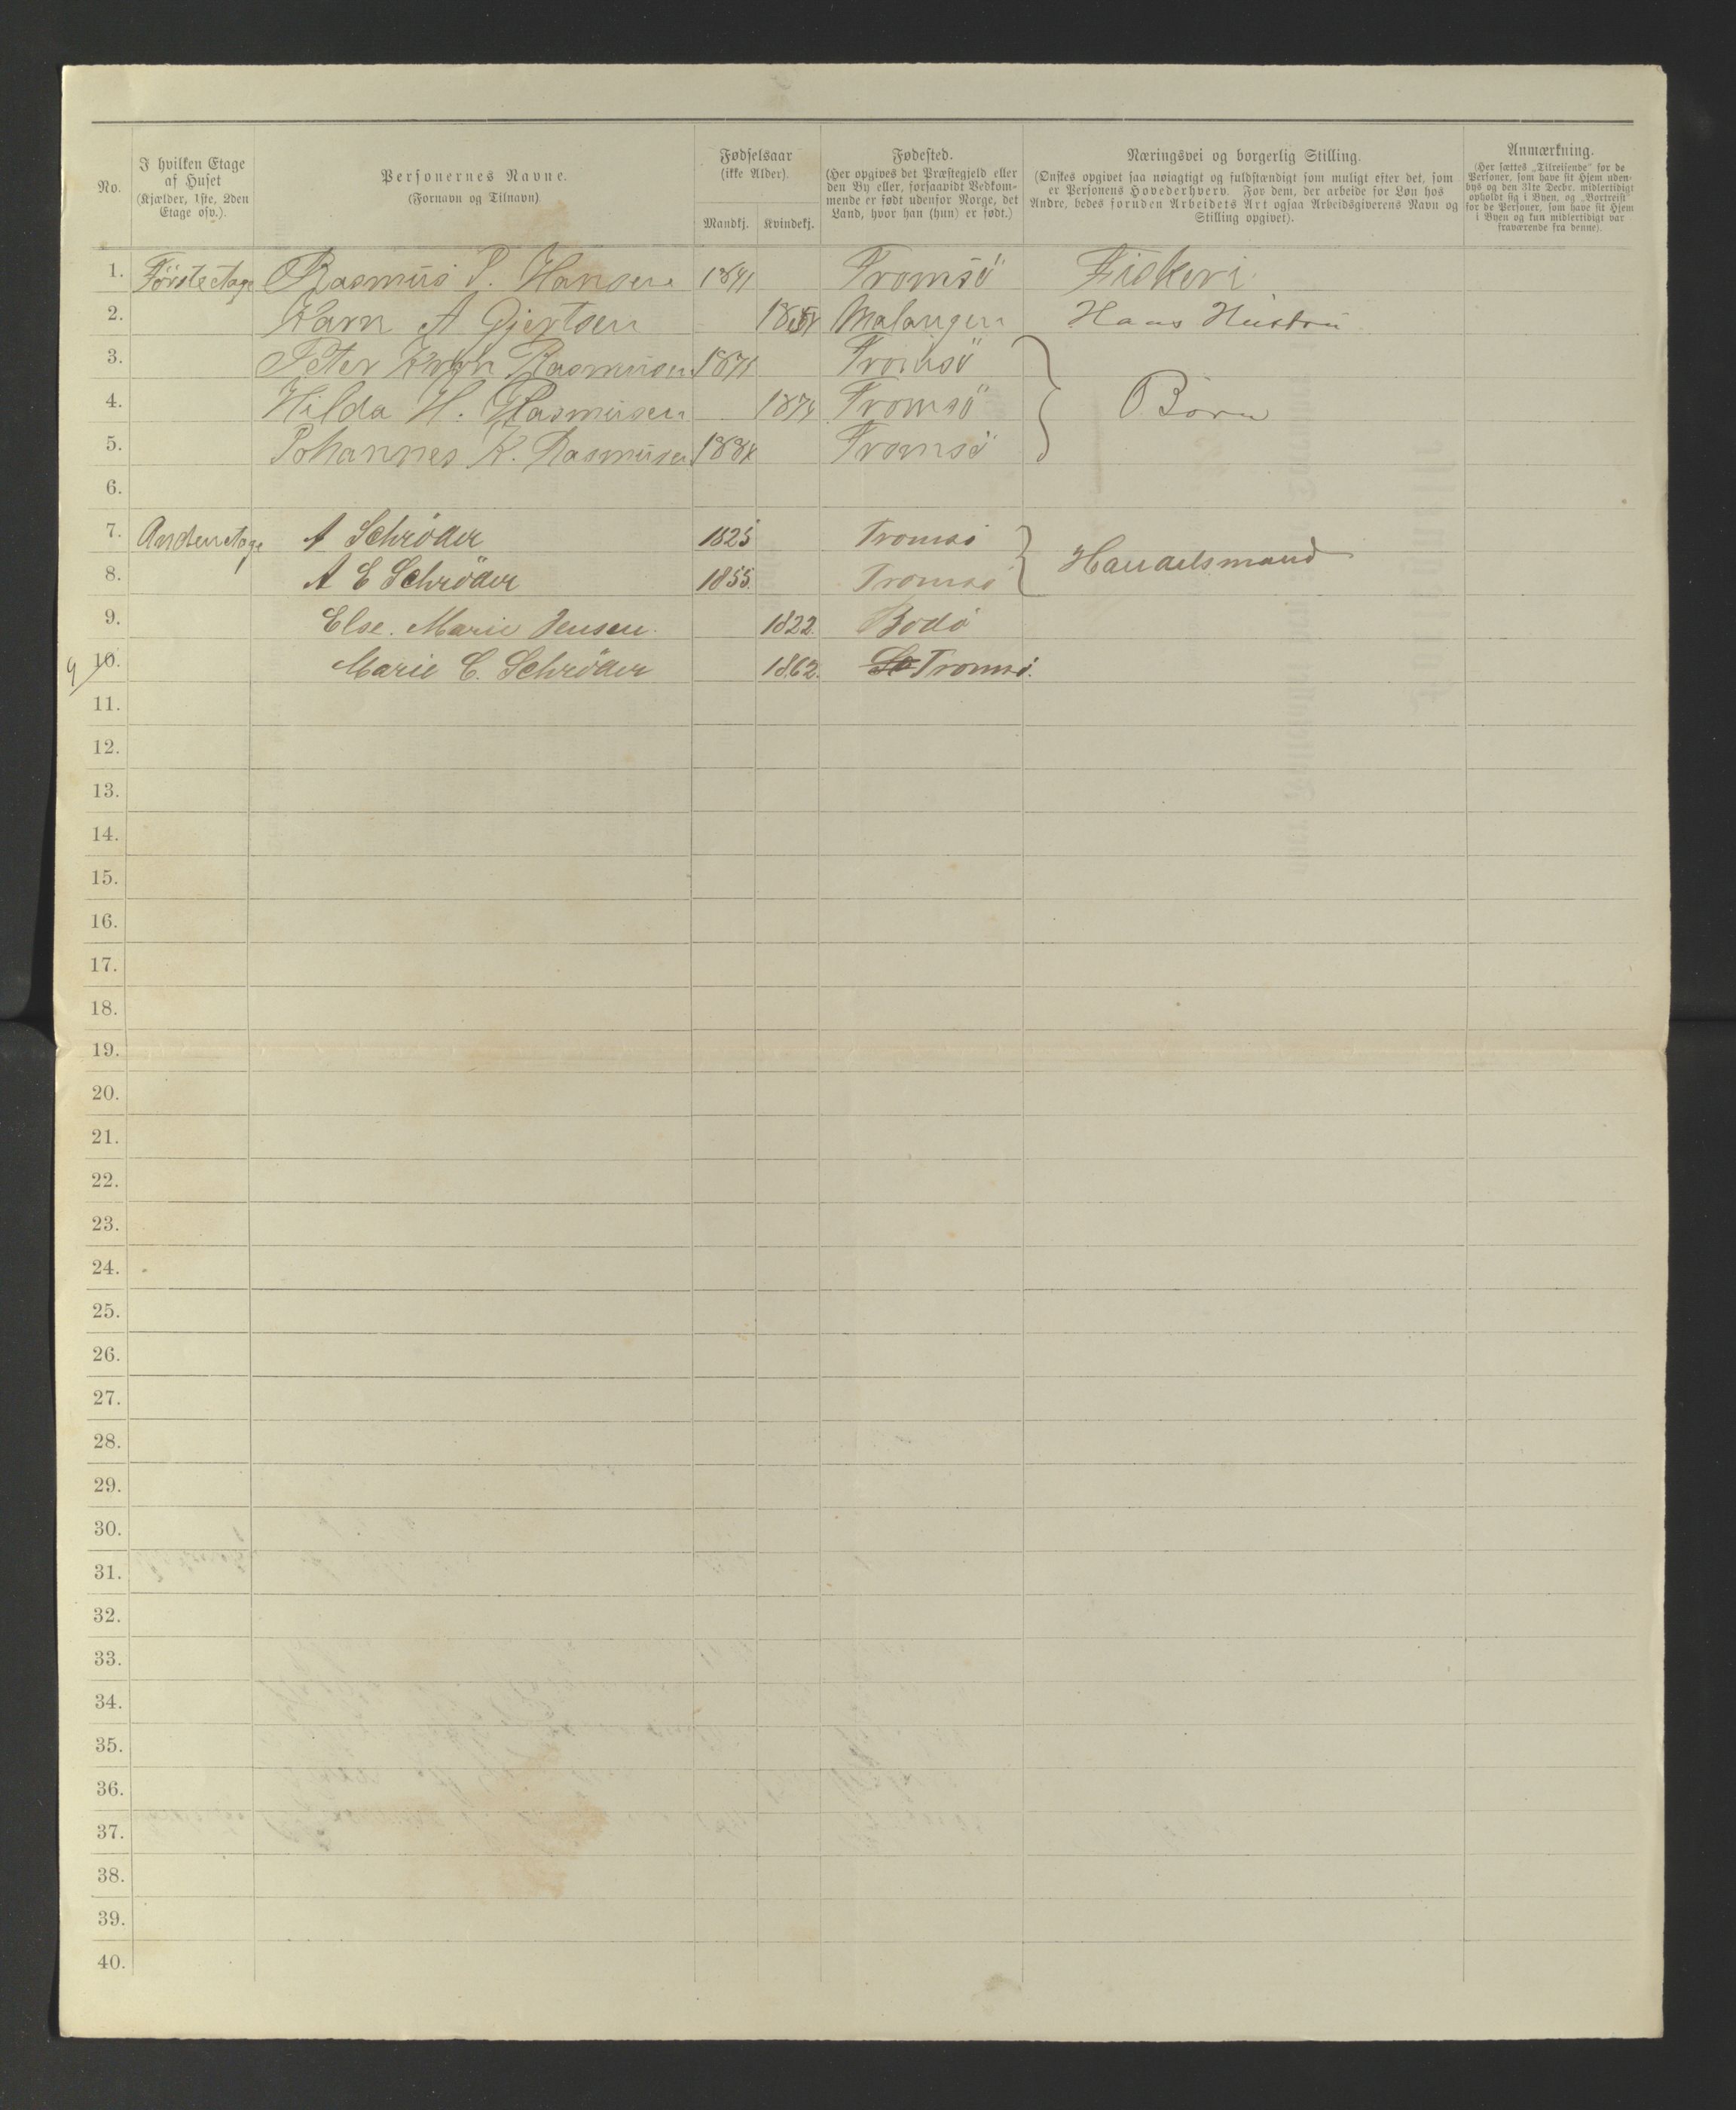 No.
I hvilken Etage af Huset (Kjælder, 1ste, 2den Etage osv.).
Personernes Navne. (Fornavn og Tilnavn)
Fødselsaar (ikke Alder).
Mandkj. Kvindekj.
Fødested. (Her opgives det Præstegjeld eller den By eller, forsaavidt Vedkommende er født udenfor Norge, det Land, hvor han (hun) er født.)
Næringsvei og borgerlig Stilling. (Ønskes opgivet saa nøiagtigt og fuldstændigt som muligt efter det, som er Personens Hovederhverv. For dem, der arbeide for Løn hos Andre, bedes foruden Arbeidets Art ogsaa Arbeidsgiverens Navn og Stilling opgivet).
Anmærkning. (Her sættes „Tilreisende“ for de Personer, som have sit Hjem udenbys og den 31te Decbr. midlertidigt opholdt sig i Byen, og „Bortreist“ for de Personer, som have sit Hjem i Byen og kun midlertidigt var fraværende fra denne).
1. Første etage Rasmus P. Hansen 1841 Tromsö Fiskeri
2. Karn A Gjertsen Malangen Hans Hustru
3. Peter Rasmusen Tromsö
4. Hilda H. Rasmusen 1874 Tromsö Börn
5. Johannes K. Rasmusen Tromsö
6.
7. Anden etage A Schröder 1825 Tromsö
8. A E Schröder 1855. Tromsö Handelsmand
9. Else. Marie Jensen. 1822. Bodö
9 10. Marie C. Schröder 1862. Tromsö.
11.
12.
13.
14.
15.
16.
17.
18.
19.
20.
21.
22.
23.
24.
25.
26.
27.
28.
29.
30.
31.
32.
33.
34.
35.
36.
37.
38.
39.
40.